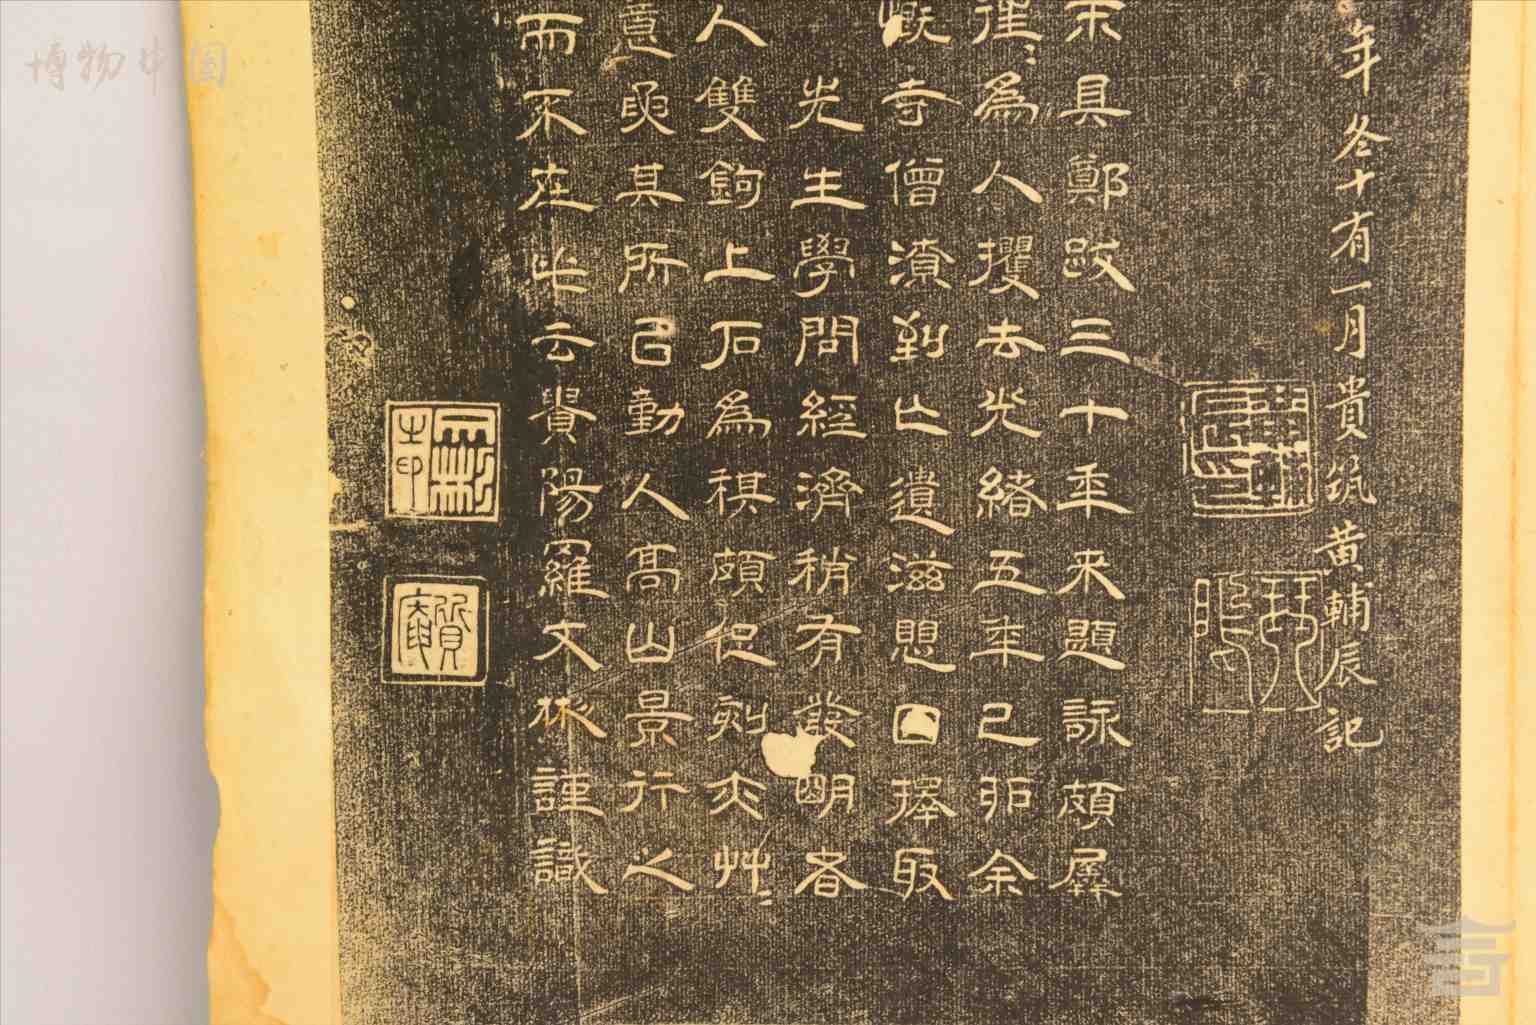 年冬十有一月貴筑黃輔辰記
末具鄭跋三十年来題詠頗屬
徃〻爲人攫去光緒五年己卯余
慨寺僧瀆剝亡遺滋思因擇取
先生學問經濟稍有發明者
人雙鉤上石爲祺頗促刻亦艸〻
意與其所以動人高山景行之
而不在此云貴陽羅文彬謹識
文彬之印
博物中国